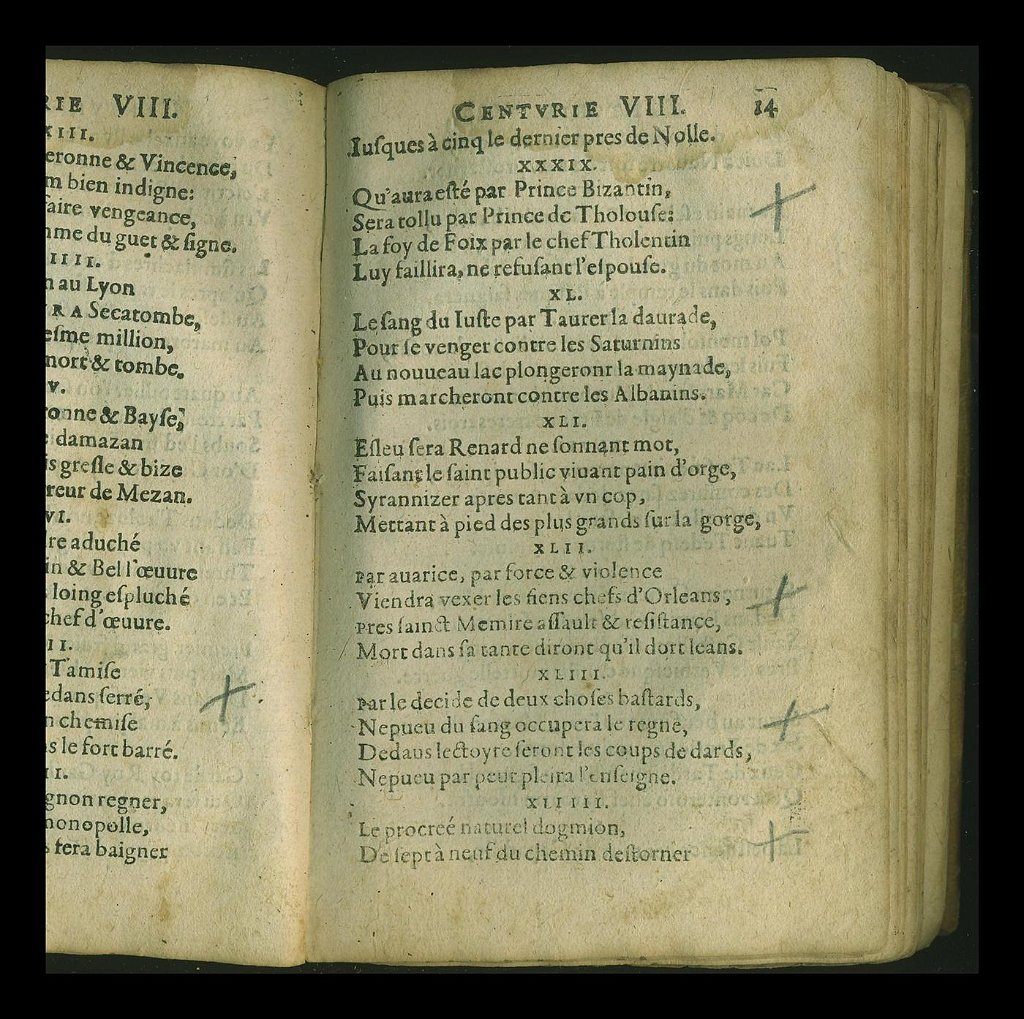 RIE VIII.
XIII.
eronne & Vincence,
m bien indigne:
faire vengeance,
me du guet & ſigne.
IIII.
n au Lyon
RA Secatombe,
eſme million,
mort & tombe.
V.
ronne & Bayſe,
e damazan
is greſle & bize
reur de Mezan.
VI.
re aduché
in & Bel l'œuure
loing eſpluché
chef d'œuure.
II.
Tamiſe
edans ſerré,
n chemiſe
s le fort barré.
II.
gnon regner,
monopolle,
ſera baigner
CENTVRIE VIII. 14
Iuſques à cinq le dernier pres de Nolle.
XXXIX.
Qu'aura eſté par Prince Bizantin,
Sera tollu par Prince de Tholouſe:
La foy de Foix par le chef Tholentin
Luy faillira, ne refuſant l'eſpouſe.
XL.
Le ſang du Iuſte par Taurer la daurade,
Pour ſe venger contre les Saturnins
Au nouueau lac plongeront la maynade,
Puis marcheront contre les Albanins.
XLI.
Eſleu ſera Renard ne ſonnant mot,
Faiſant le ſaint public viuant pain d'orge,
Syrannizer apres tant à vn cop,
Mettant à pied des plus grands ſur la gorge,
XLII.
Par auarice, par force & violence
Viendra vexer les ſiens chefs d'Orleans,
Pres ſainct Memire aſſault & reſiſtance,
Mort dans ſa tante diront qu'il dort leans.
XLIII.
Par le decide de deux choſes baſtards,
Nepueu du ſang occupera le regne,
Dedans lectoyre ſeront les coups de dards,
Nepueu par peur pleira l'enſeigne.
XLIIII.
Le procreé naturel dogmion,
De ſept à neuf du chemin deſtorner